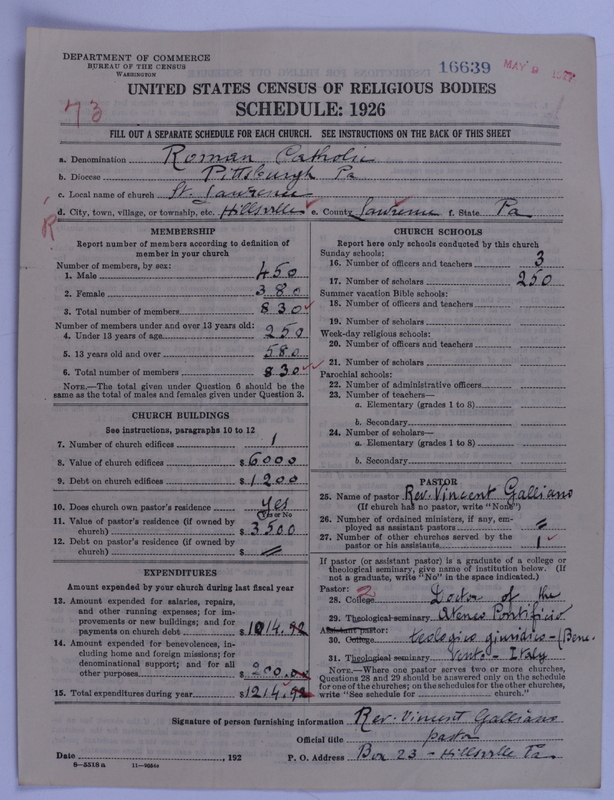 DEPARTMENT OF COMMERCE
BUREAU OF THE CENSUS
WASHINGTON
16639
MAY 9
UNITED STATES CENSUS OF RELIGIOUS BODIES
73
SCHEDULE: 1926
FILL OUT A SEPARATE SCHEDULE FOR EACH CHURCH. SEE INSTRUCTIONS ON THE BACK OF THIS SHEET
a. Denomination Roman Catholic
b. Diocese Pittsburgh Pa
c. Local name of church St. Lawrence
d. City, town, village, or township, etc. Hillsville e. County Lawrence f. State Pa
R
MEMBERSHIP
Report number of members according to definition of
member in your church
Number of members, by sex:
1. Male 450
2. Female 380
3. Total number of members 830
Number of members under and over 13 years old:
4. Under 13 years of age 250
5. 13 years old and over 580
6. Total number of members 830
NOTE.—The total given under Question 6 should be the
same as the total of males and females given under Question 3.
CHURCH BUILDINGS
See instructions, paragraphs 10 to 12
7. Number of church edifices 1
8. Value of church edifices $6000
9. Debt on church edifices $1200
10. Does church own pastor's residence yes
(Yes or No)
11. Value of pastor's residence (if owned by
church) $3500
12. Debt on pastor's residence (if owned by
church) $
EXPENDITURES
Amount expended by your church during last fiscal year
13. Amount expended for salaries, repairs,
and other running expenses; for im-
provements or new buildings; and for
payments on church debt $1014.92
14. Amount expended for benevolences, in-
cluding home and foreign missions; for
denominational support; and for all
other purposes $200.00
15. Total expenditures during year $1214.92
CHURCH SCHOOLS
Report here only schools conducted by this church
Sunday schools:
16. Number of officers and teachers 3
17. Number of scholars 250
Summer vacation Bible schools:
18. Number of officers and teachers
19. Number of scholars
Week-day religious schools:
20. Number of officers and teachers
21. Number of scholars
Parochial schools:
22. Number of administrative officers
23. Number of teachers—
a. Elementary (grades 1 to 8)
b. Secondary
24. Number of scholars—
a. Elementary (grades 1 to 8)
b. Secondary
PASTOR
25. Name of pastor Rev. Vincent Galliano
(If church has no pastor, write "None")
26. Number of ordained ministers, if any, em-
ployed as assistant pastors
27. Number of other churches served by the
pastor or his assistants 1
If pastor (or assistant pastor) is a graduate of a college or
theological seminary, give name of institution below. (If
not a graduate, write "No" in the space indicated.)
Pastor: 2
28. College Doctor of the
29. Theological seminary Ateneo Pontificio
Assistant pastor:
30. College teologico giuridico - (Bene-
31. Theological seminary vento - Italy
NOTE.—Where one pastor serves two or more churches,
Questions 28 and 29 should be answered only on the schedule
for one of the churches; on the schedules for the other churches,
write "See schedule for church."
Signature of person furnishing information Rev. Vincent Galliano
Official title pastor
Date , 192 P. O. Address Box 23 - Hillsville Pa.
8—5318a 11—9554